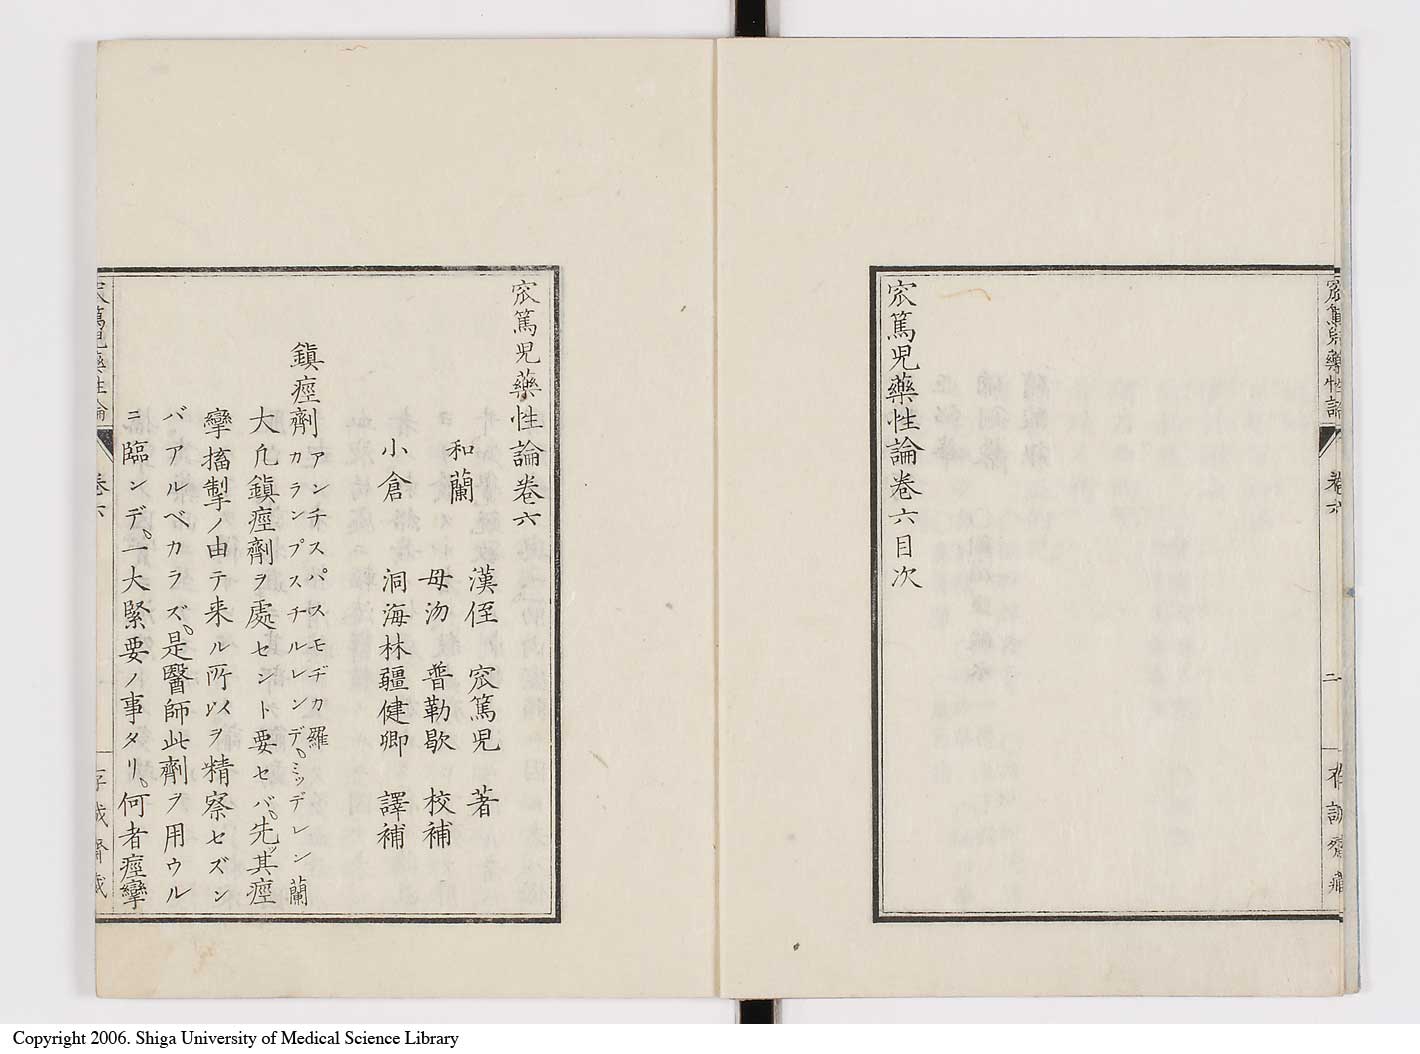 窊篤兒藥性論
卷六
二
存誠齋藏
窊篤児藥性論卷六目次
窊篤児藥性論卷六
和蘭
漢侄 窊篤児 著
母沕 普勒歇 校補
小倉 洞海林疆健卿 譯補
鎮痙劑
アンチスパスモヂカ羅
カランプスチルレンデ。ミッデレン蘭
大凢鎮痙劑ヲ處セント要セバ。先ッ其痙
攣搐掣ノ由テ来ル所以ヲ精察セズン
バ。アルベカラズ。是醫師此劑ヲ用ウル
ニ臨ンデ。一大緊要ノ事タリ。何者痙攣
窊篤児藥性論
卷六
存誠齋藏
Copyright 2006. Shiga University of Medical Science Library